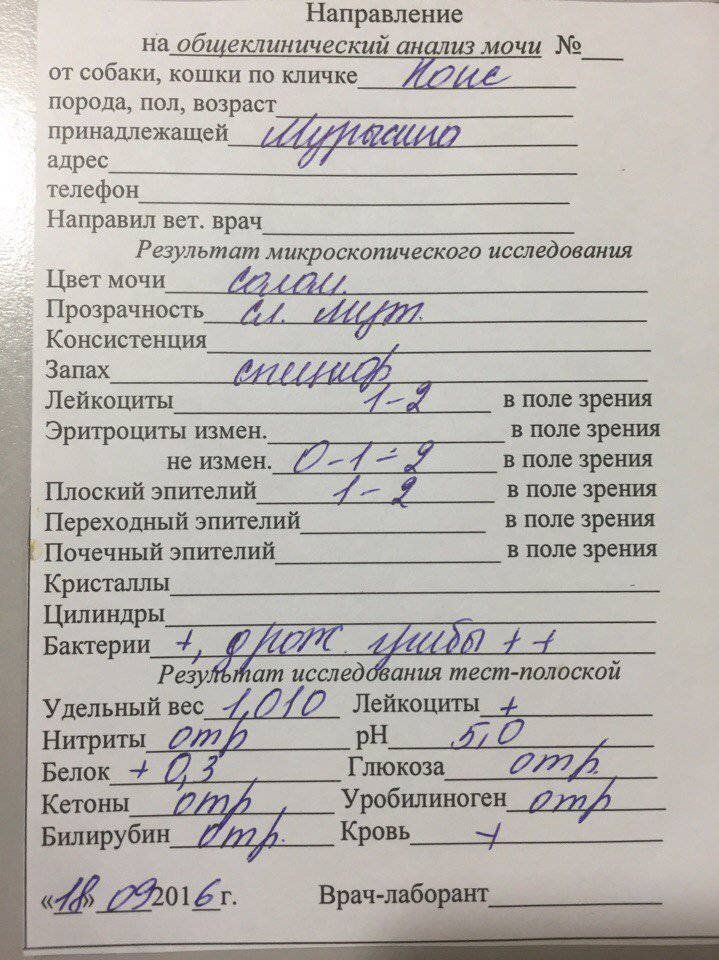 Направление
на общеклинический анализ мочи №
от собаки, кошки по кличке
порода, пол, возраст
принадлежащей
адрес
телефон
Направил вет. врач
Результат микроскопического исследования
Цвет мочи солом.
Прозрачность сл. мут.
Консистенция
Запах специф
Лейкоциты 1-2 в поле зрения
Эритроциты измен. в поле зрения
не измен. 0-1-2 в поле зрения
Плоский эпителий 1-2 в поле зрения
Переходный эпителий в поле зрения
Почечный эпителий в поле зрения
Кристаллы
Цилиндры
Бактерии +, дрож. грибы ++
Результат исследования тест-полоской
Удельный вес 1,010 Лейкоциты +
Нитриты отр рН 5,0
Белок + 0,3 Глюкоза отр.
Кетоны отр Уробилиноген отр
Билирубин отр. Кровь +
«18» 09 2016 г. Врач-лаборант